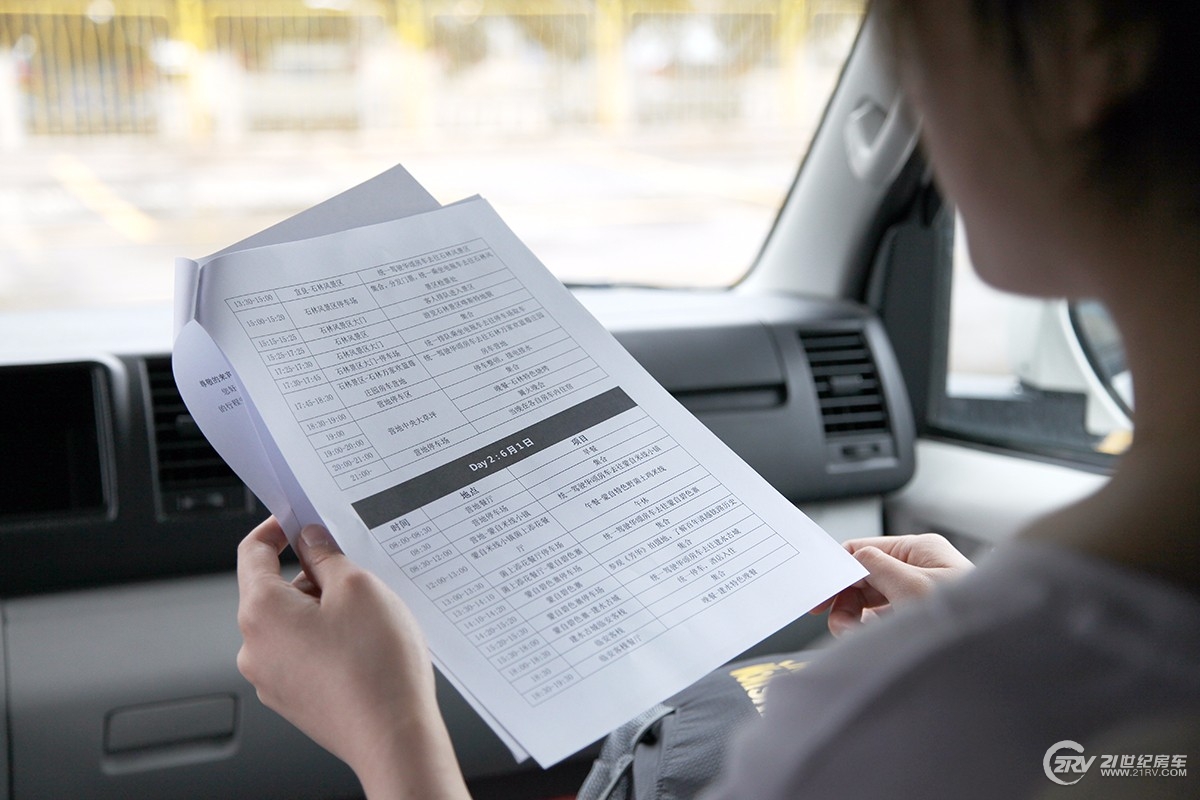 13:30-15:00 宜良-石林风景区 统一驾驶华颂房车去往石林风景区
15:00-15:15 石林风景区停车场 集合，分发门票，统一乘坐电瓶车去往石林风
15:15-15:25 石林风景区大门 景区检票处
15:25-17:25 石林风景区 客人排队进入景区
17:25-17:30 石林风景区大门 集合
17:30-17:45 石林景区大门-停车场 统一排队乘坐电瓶车去往停车场取车
17:45-18:30 石林景区-石林万家欢蓝莓庄园房车营地
18:30-19:00 营地停车区 停车整顿，接电接水
19:00
19:00-20:00 营地中央大草坪 晚餐-石林特色烧烤
20:00-21:00 篝火晚会
21:00- 营地停车场 当晚在各自房车内住宿
Day 2：6月1日
时间 地点 项目
08:00-08:30 营地餐厅 早餐
08:30 营地停车场 集合
08:30-12:00 营地-蒙自米线小镇 统一驾驶华颂房车去往蒙自米线小镇
12:00-13:00 午餐-蒙自特色野菌土鸡米线
13:00-13:30 午休
13:30-14:10 统一驾驶华颂房车去往蒙自碧色寨
14:10-14:20 蒙自碧色寨停车场 集合
14:20-15:20 蒙自碧色寨 参观《芳华》拍摄地，了解百年滇越铁路历史
15:20-15:30 蒙自碧色寨停车场 集合
15:30-18:00 蒙自碧色寨-建水古城 统一驾驶华颂房车去往建水古城
18:00-18:30 建水古城临安客栈 统一停车，酒店入住
18:30 临安客栈 集合
18:30-19:30 临安客栈餐厅 晚餐-建水特色晚餐
尊敬的来宾
2RV 21世纪房车
WWW.21RV.COM